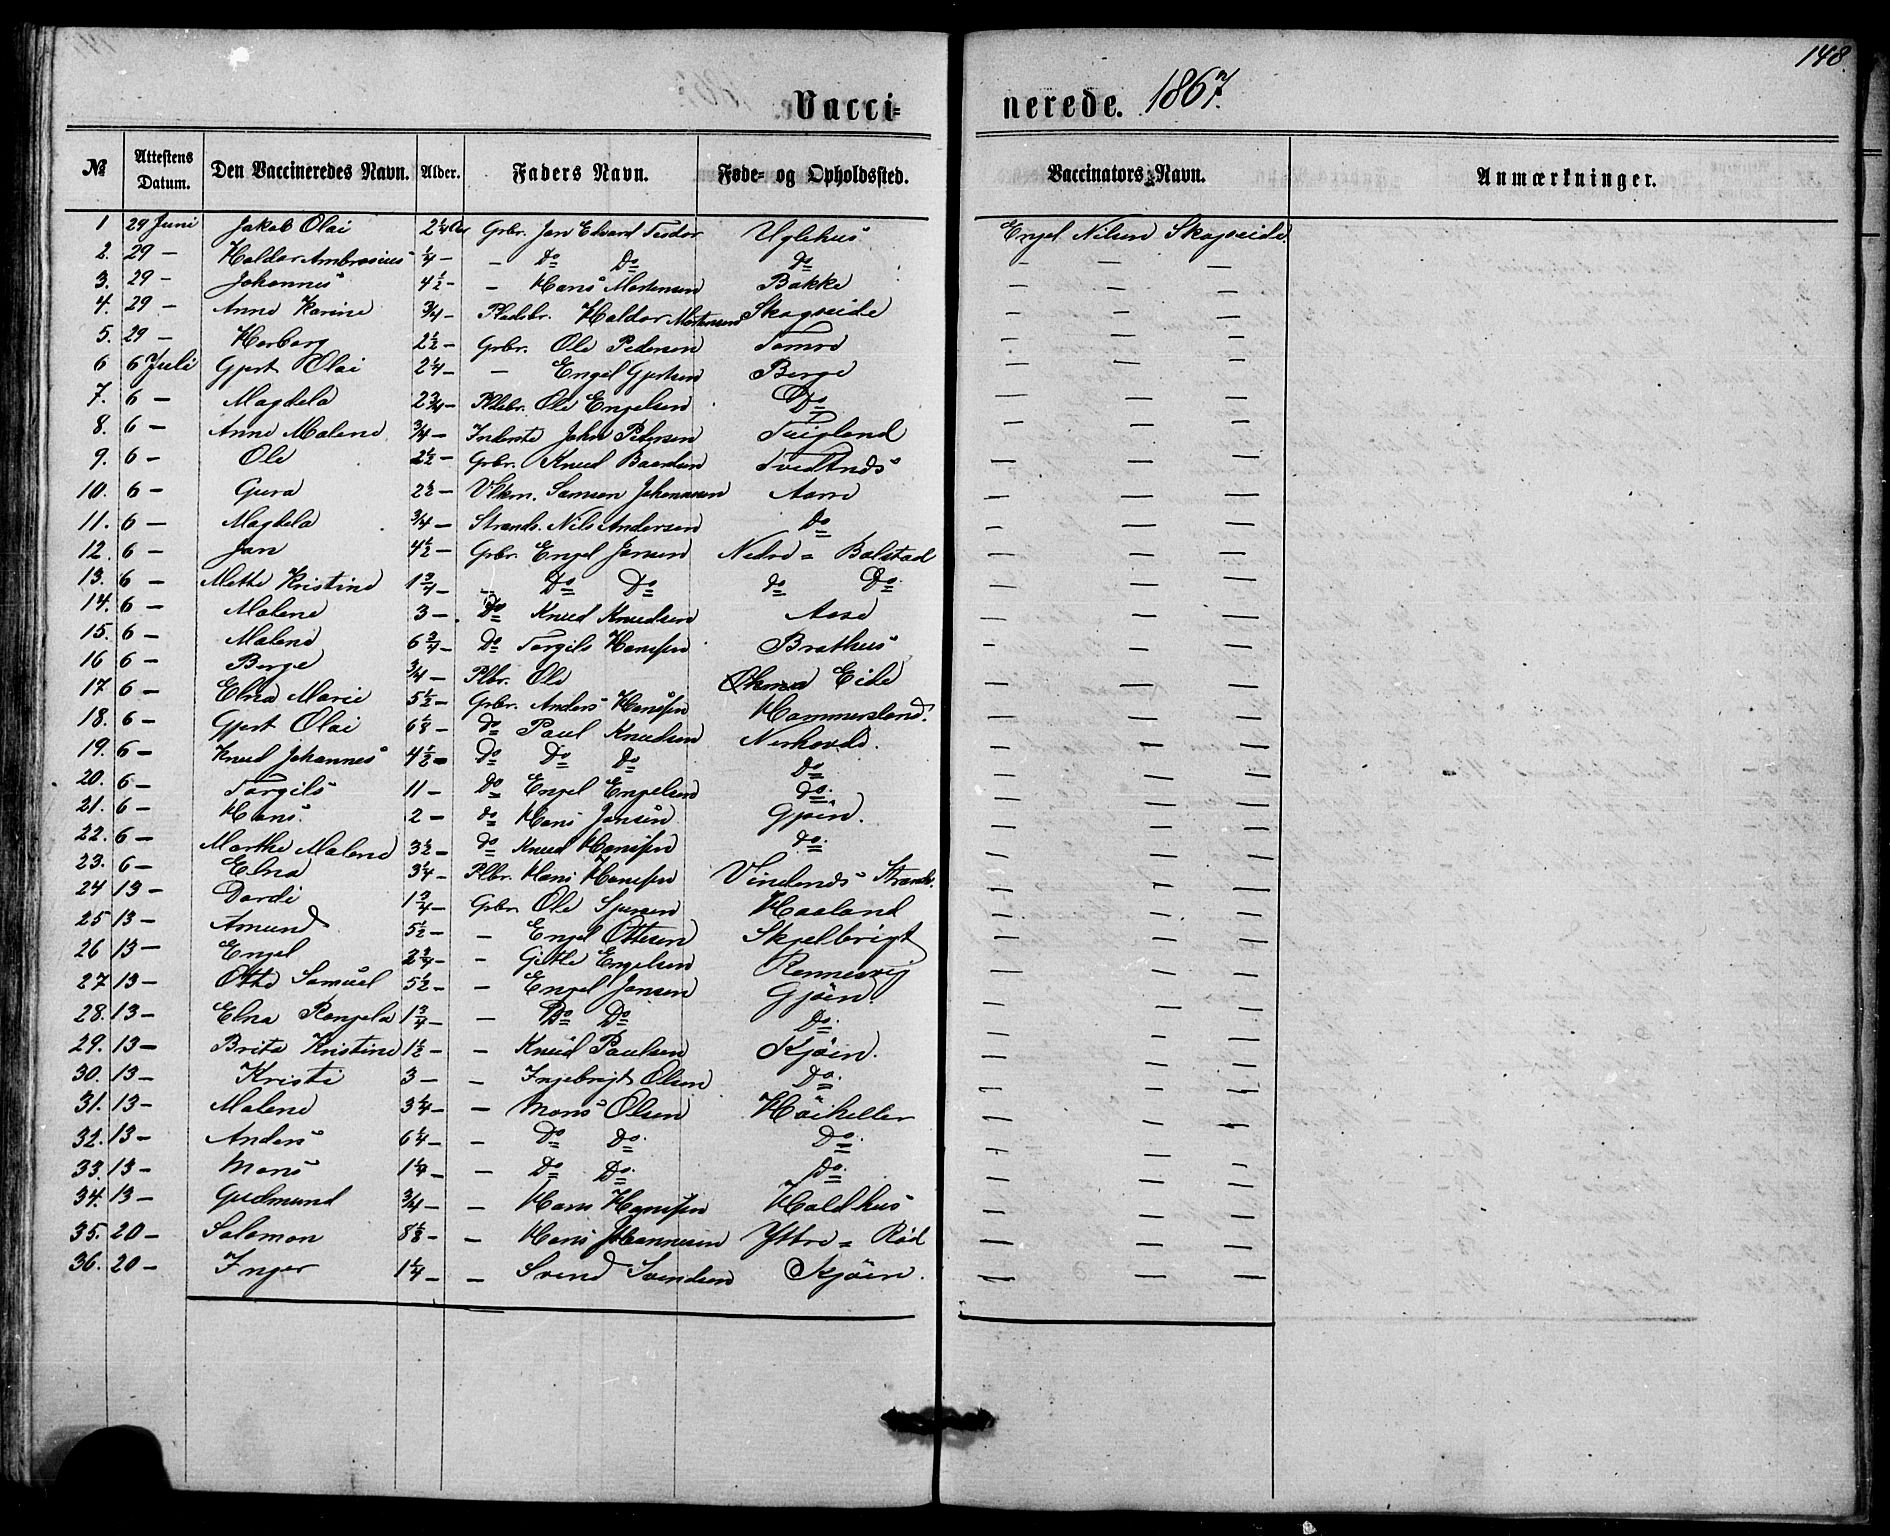 148.
Vacci- nerede. 1867.
№ Attestens Datum. Den Vaccineredes Navn. Alder. Faders Navn. Føde- og Opholdssted. Vaccinators Navn. Anmærkninger.
1 29 Juni Jakob Olai 2 1/4 Aar Grbr. Jan Edvard Teodor Uglehus Engel Nilsen Skogseide.
2. 29 — Haldor Ambrosius 1/4 — — Do Do do — — —
3. 29 — Johannes 4 1/2 — — Hans Mortensen Bakke — — —
4. 29 — Anne Karine 3/4 — Pladsbr. Haldor Mortensen Skogseide — — —
5. 29 — Herborg 2 1/2 — Grbr. Ole Pedersen — — —
6 6 Juli Gjert Olai 2 1/4 — — Engel Gjertsen Berge — — —
7. 6 — Magdela 2 3/4 — Pldsbr. Ole Engelsen Do — — —
8. 6 — Anne Malene 3/4 — Inderste John Pedersen — — —
9. 6 — Ole 2 1/2 — Grbr. Knud Baardsen — — —
10. 6 — Gura 2 1/2 — Samson Johannesen Aarre — — —
11. 6 — Magdela 3/4 — Strands. Nils Andersen Do — — —
12. 6 — Jan 4 1/2 — Grbr. Engel Jansen Nedre = Bolstad — — —
13. 6 — Mette Kristine 1 3/4 — — Do Do do Do — — —
14. 6 — Malene 3 — Do Knud Knudsen Aase — — —
15. 6 — Malene 6 3/4 — Do Torgils Hansen Brathus — — —
16 6 — Berge 3/4 — Plbr. Ole Eide — — —
17 6 — Elna Marie 5 1/2 — Grbr. Anders Hansen Hammersland. — — —
18. 6 — Gjert Olai 6 1/2 — do Paul Knudsen Nerhovde. — — —
19. 6 — Knud Johannes 4 1/2 — Do Do do Do — — —
20. 6 — Torgils 11 — Do Engel Engelsen do. — — —
21. 6 — Hans. 2 — do Hans Jansen Gjøn. — — —
22. 6 — Marthe Malene 3 1/2 — do Knud Hansen do. — — —
23. 6 — Elna 3 1/4 — Plbr. Hans Hansen Vindenes Strands. — — —
24 13 — Dordi 1 3/4 — Grbr. Ole Sjursen Haaland — — —
25 13 — Amund 5 1/2 — — Engel Ottesen Skjelbrigt — — —
26 13 — Engel 2 3/4 — — Gitle Engelsen Rennesvig — — —
27 13 — Otto Samuel 5 1/2 — — Engel Jansen Gjöen. — — —
28. 13 — Elna Rangela 1 3/4 — — Do Do Do. — — —
29. 13 — Brita Kristine 1 1/2 — — Knud Paulsen Kjöen. — — —
30. 13 — Kristi 3 — — Ingebrigt Olsen Do. — — —
31. 13 — Malene 3 1/4 — — Mons Olsen Höiheller — — —
32. 13 — Anders 6 1/4 — — Do Do. Do. — — —
33. 13 — Mons 1 1/4 — — Do Do. Do. — — —
34. 13 — Gudmund 3/4 — — Hans Hansen Haldhus — — —
35. 20 — Salomon 8 1/2 — — Hans Johannesen Yttre = Rød — — —
36. 20 — Inger 1 1/4 — — Svend Svendsen Kjöen. — — —